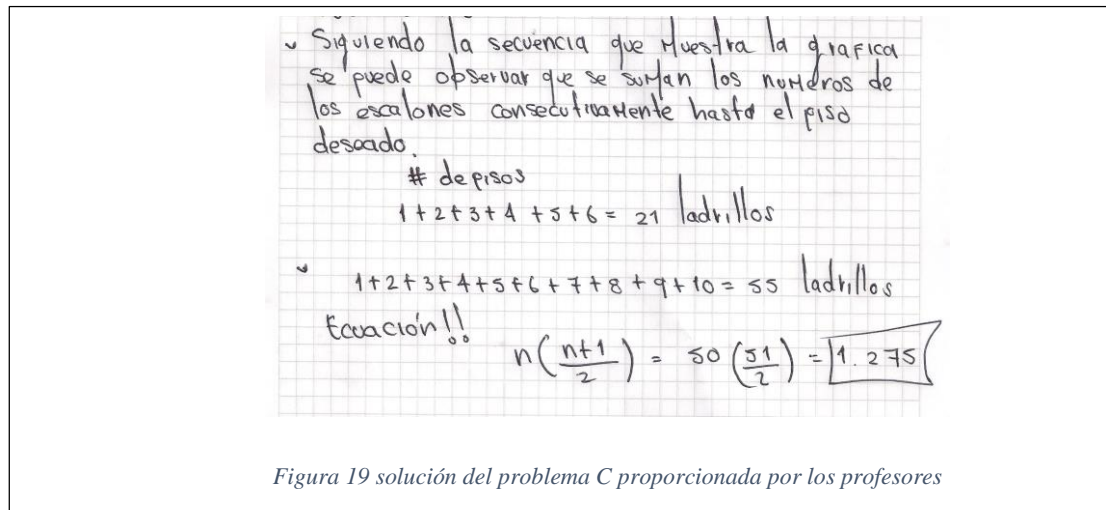 Siguiendo la secuencia que Muestra la grafica
se puede observar que se suman los numeros de
los escalones consecutivamente hasta el piso
deseado.
# de pisos
1+2+3+4+5+6 = 21 ladrillos
1+2+3+4+5+6+7+8+9+10 = 55 ladrillos
Ecuación!!
n(n+1/2) = 50(51/2) = 1.275
Figura 19 solución del problema C proporcionada por los profesores